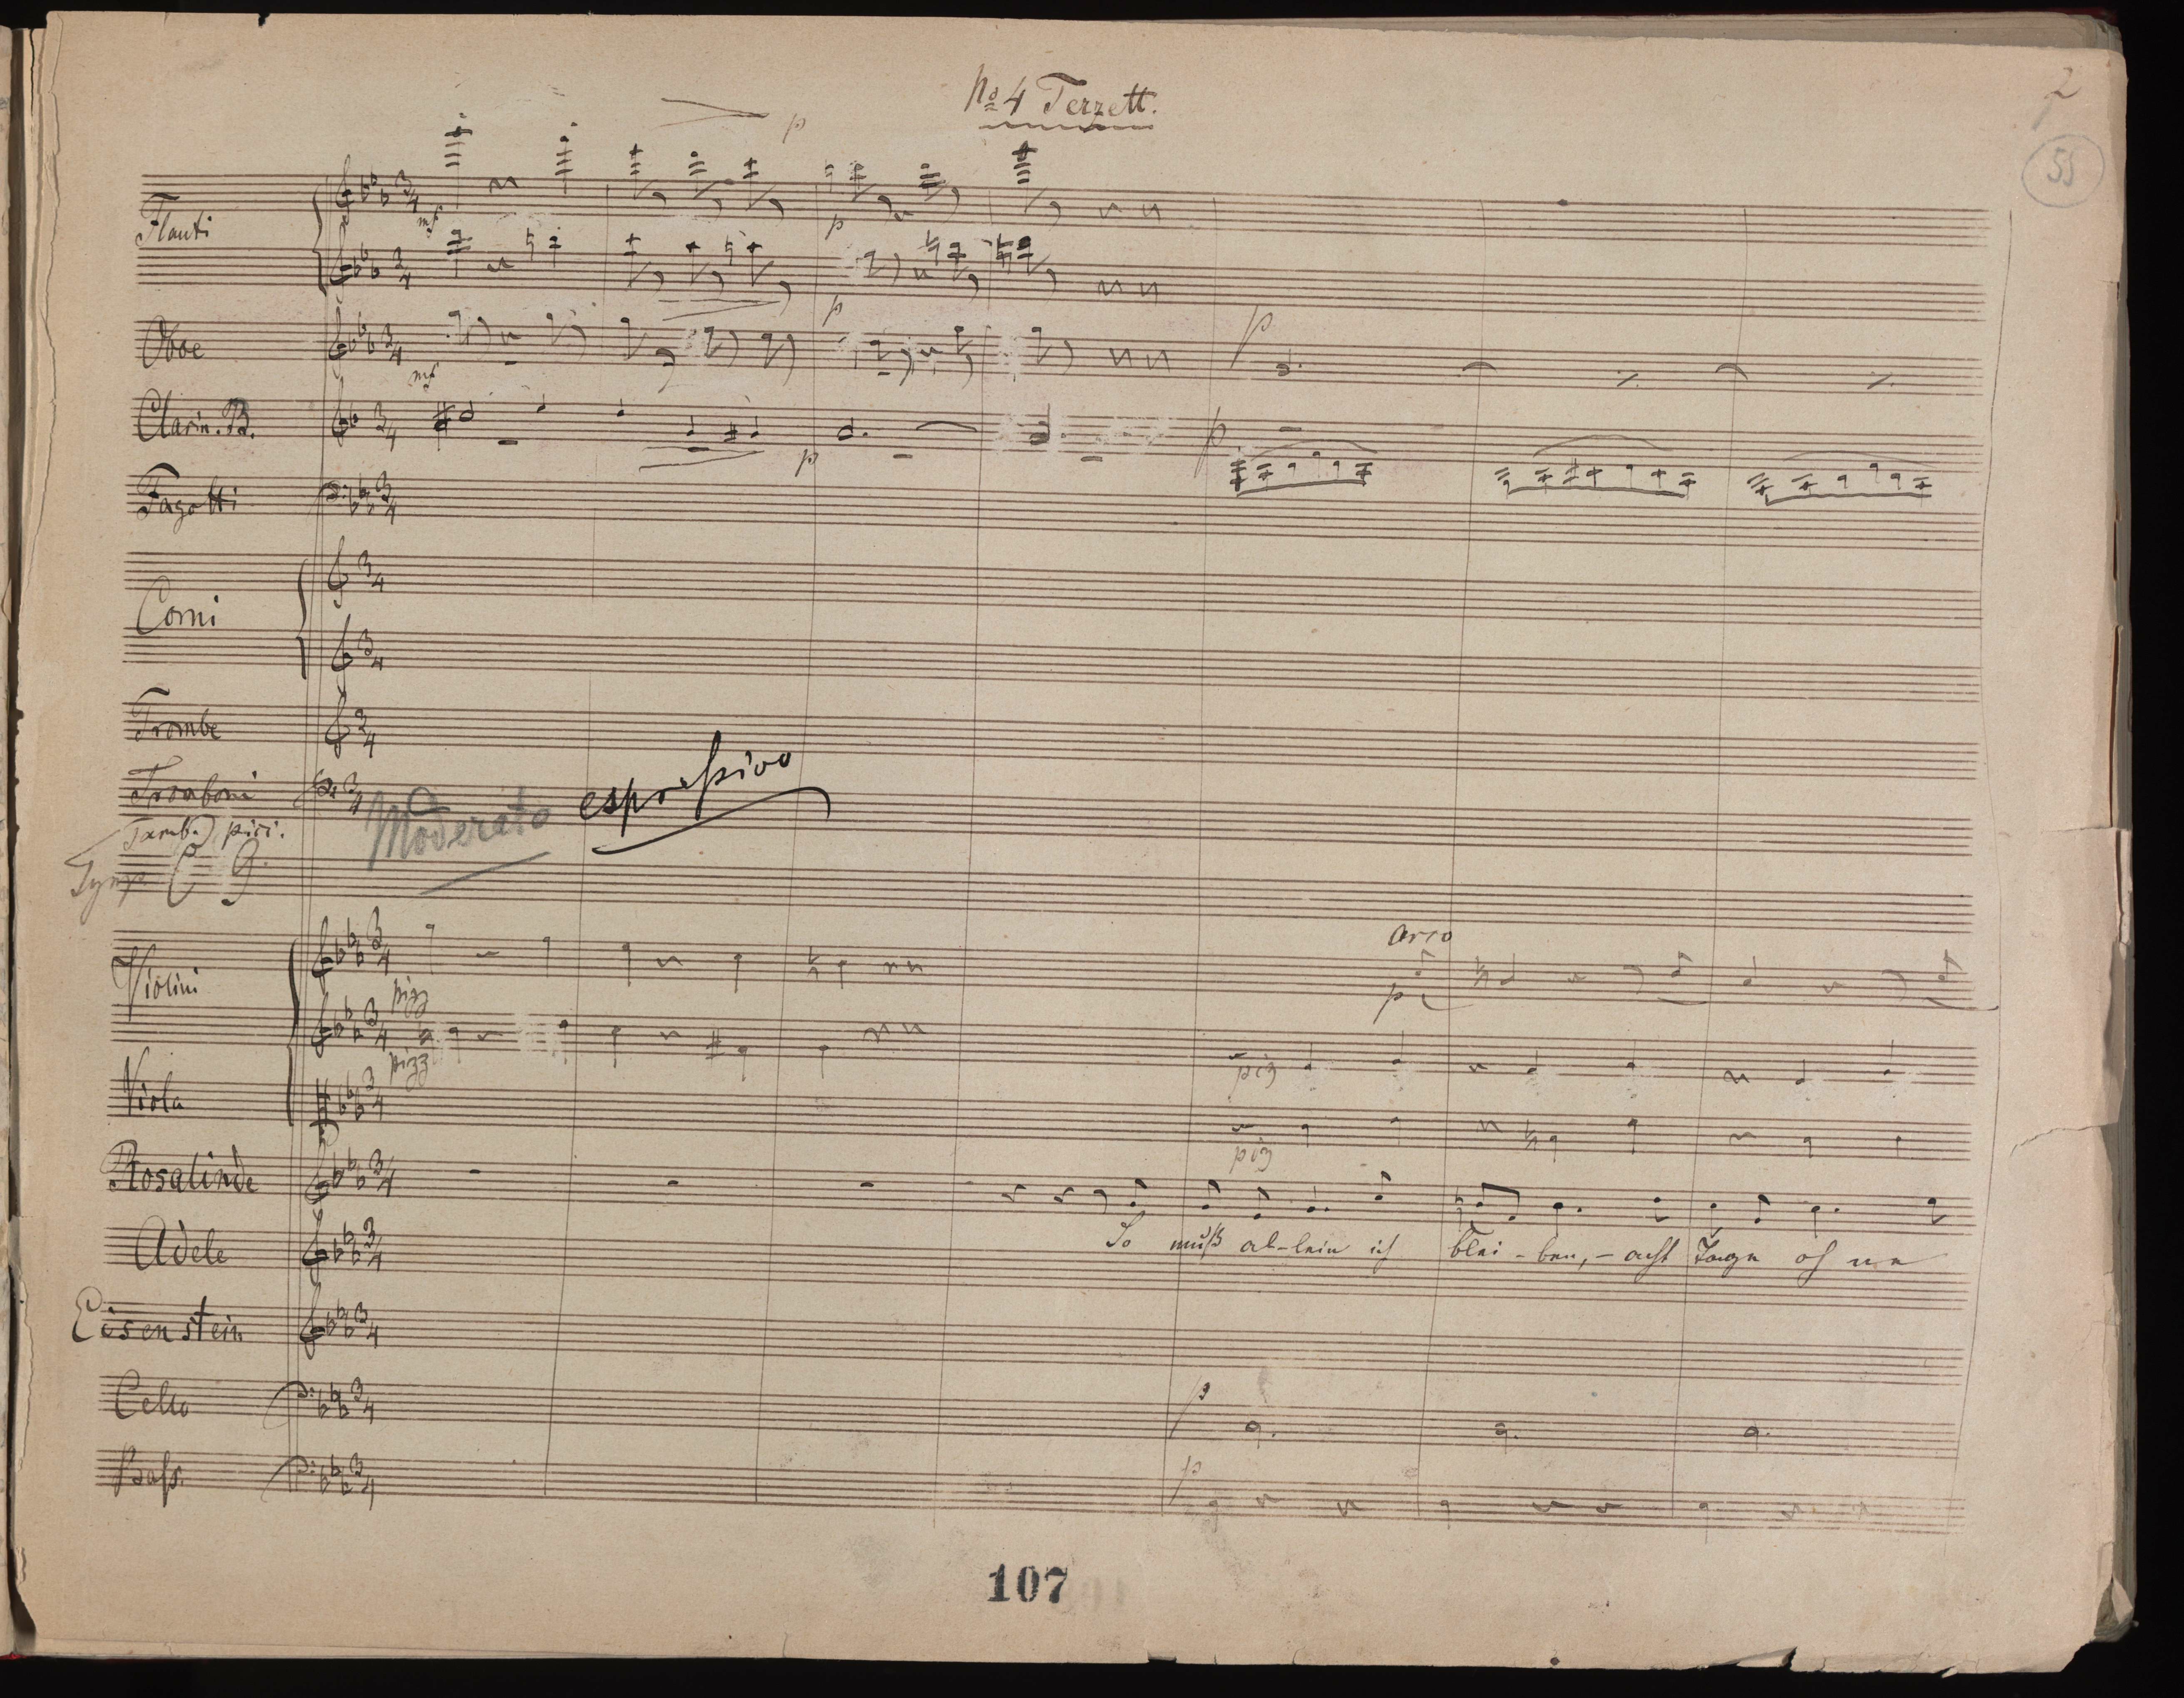 No 4 Terzett.
2
55
p
Flauti
mf
p
p
Oboe
mf
p
Clarin. B.
p
p
Fagotti
Corni
Trombe
Tromboni
Moderato espressivo
Tamb. picc.
Tymp. C G.
arco
Violini
pizz
p
pizz
piz
Viola
piz
Rosalinde
So muß al-lein ich blei-ben, - acht Tage oh ne
Adele
Eisenstein
Cello
p
Bass.
p
107